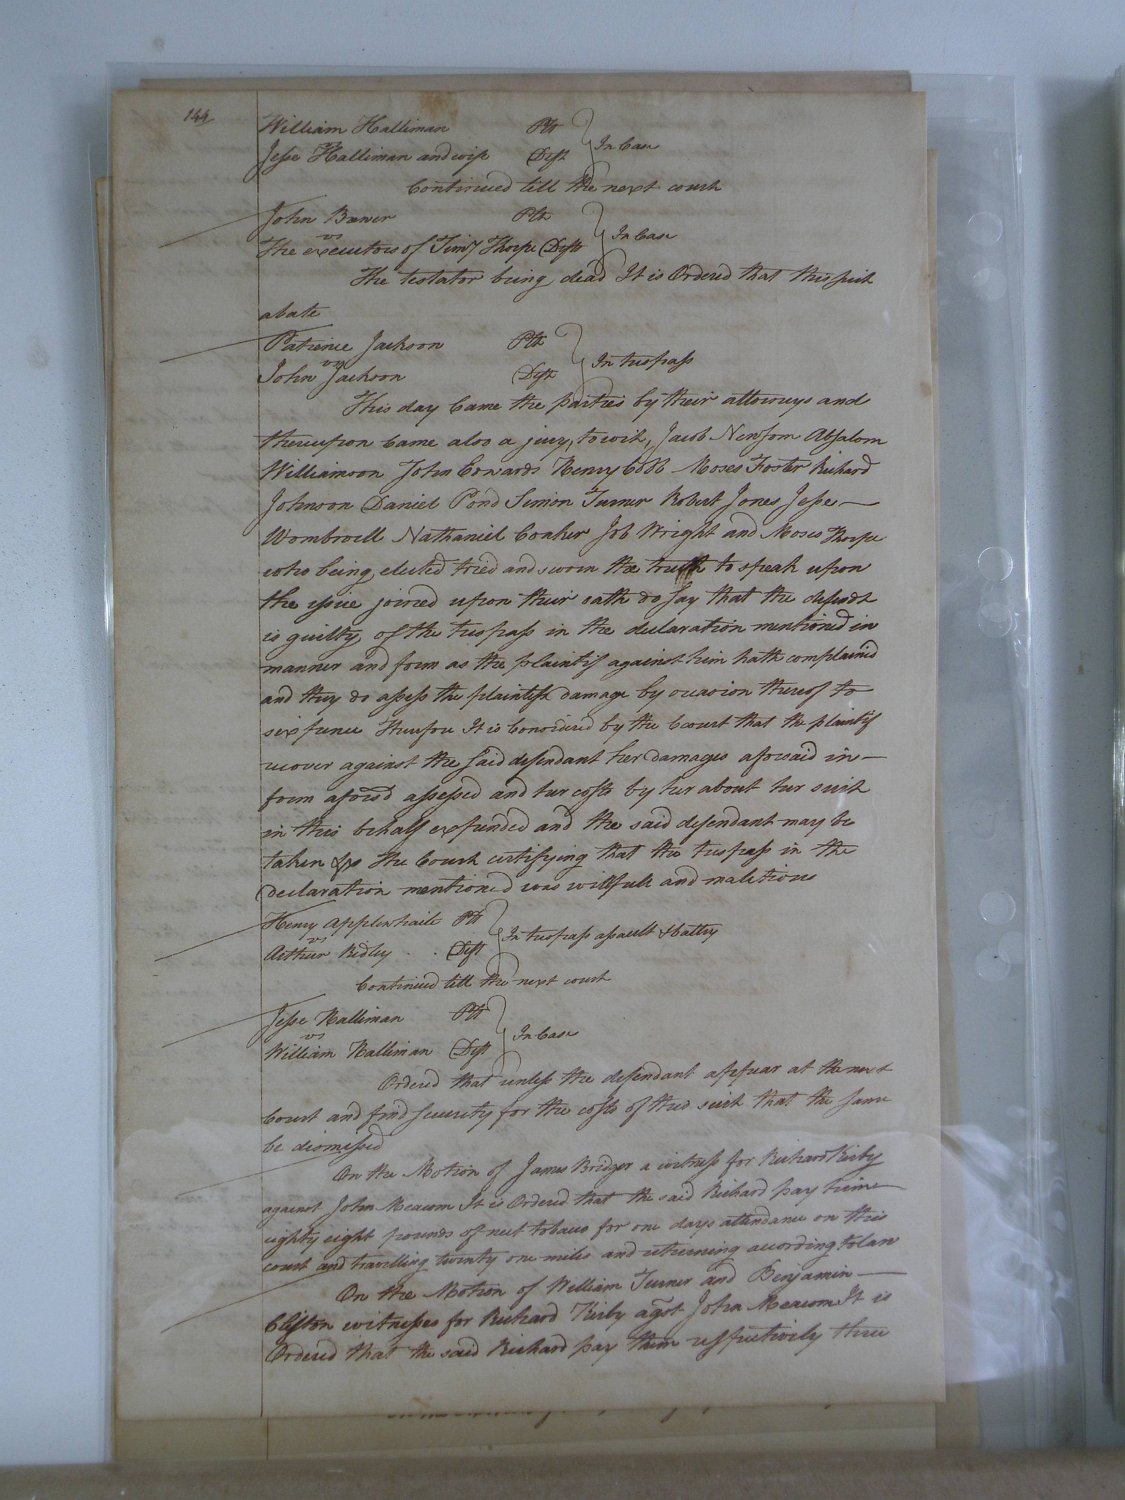 144
William Halliman Plt
Jesse Halliman and wife Deft } In Case
Continued till the next court
John Bowner Plt
vs
The executors of Timy Thorpe Defts } In Case
The testator being dead It is Ordered that this suit
abate
Patience Jackson Plt
vs
John Jackson Deft } In trespass
This day Came the parties by their attorneys and
thereupon Came also a jury, to wit, Jacob Newsom Absalom
Williamson John Edwards Henry Cobb Moses Foster Richard
Johnson Daniel Pond Simon Turner Robert Jones Jesse —
Wombwell Nathaniel Conker Job Wright and Moses Thorpe
who being elected tried and sworn the truth to speak upon
the issue joined upon their oath do say that the defendt
is guilty of the trespass in the declaration mentioned in
manner and form as the plaintif against him hath complained
and they do assess the plaintiffs damage by occasion thereof to
sixpence Therefore It is Considered by the Court that the plaintif
recover against the said defendant her damages aforsaid in —
form aforsd assessed and her costs by her about her suit
in this behalf expended and the said defendant may be
taken &c The Court certifying that the trespass in the
declaration mentioned was willfull and malitious
Henry Applewhaite Plt
vs
Arthur Ridley Deft } In trespass assault & battry
Continued till the next court
Jesse Halliman Plt
vs
William Halliman Deft } In Case
Ordered that unless the defendant appear at the next
Court and find security for the costs of this suit that the same
be dismissed
On the Motion of James Bridger a witness for Richard Kirby
against John Meacom It is Ordered that the said Richard pay him —
eighty eight pounds of net tobacco for one days attendance on this
court and travelling twenty one miles and returning according to law
On the Motion of William Turner and Benjamin —
Clifton witnesses for Richard Kirby agst John Meacom It is
Ordered that the said Richard pay them respectively three